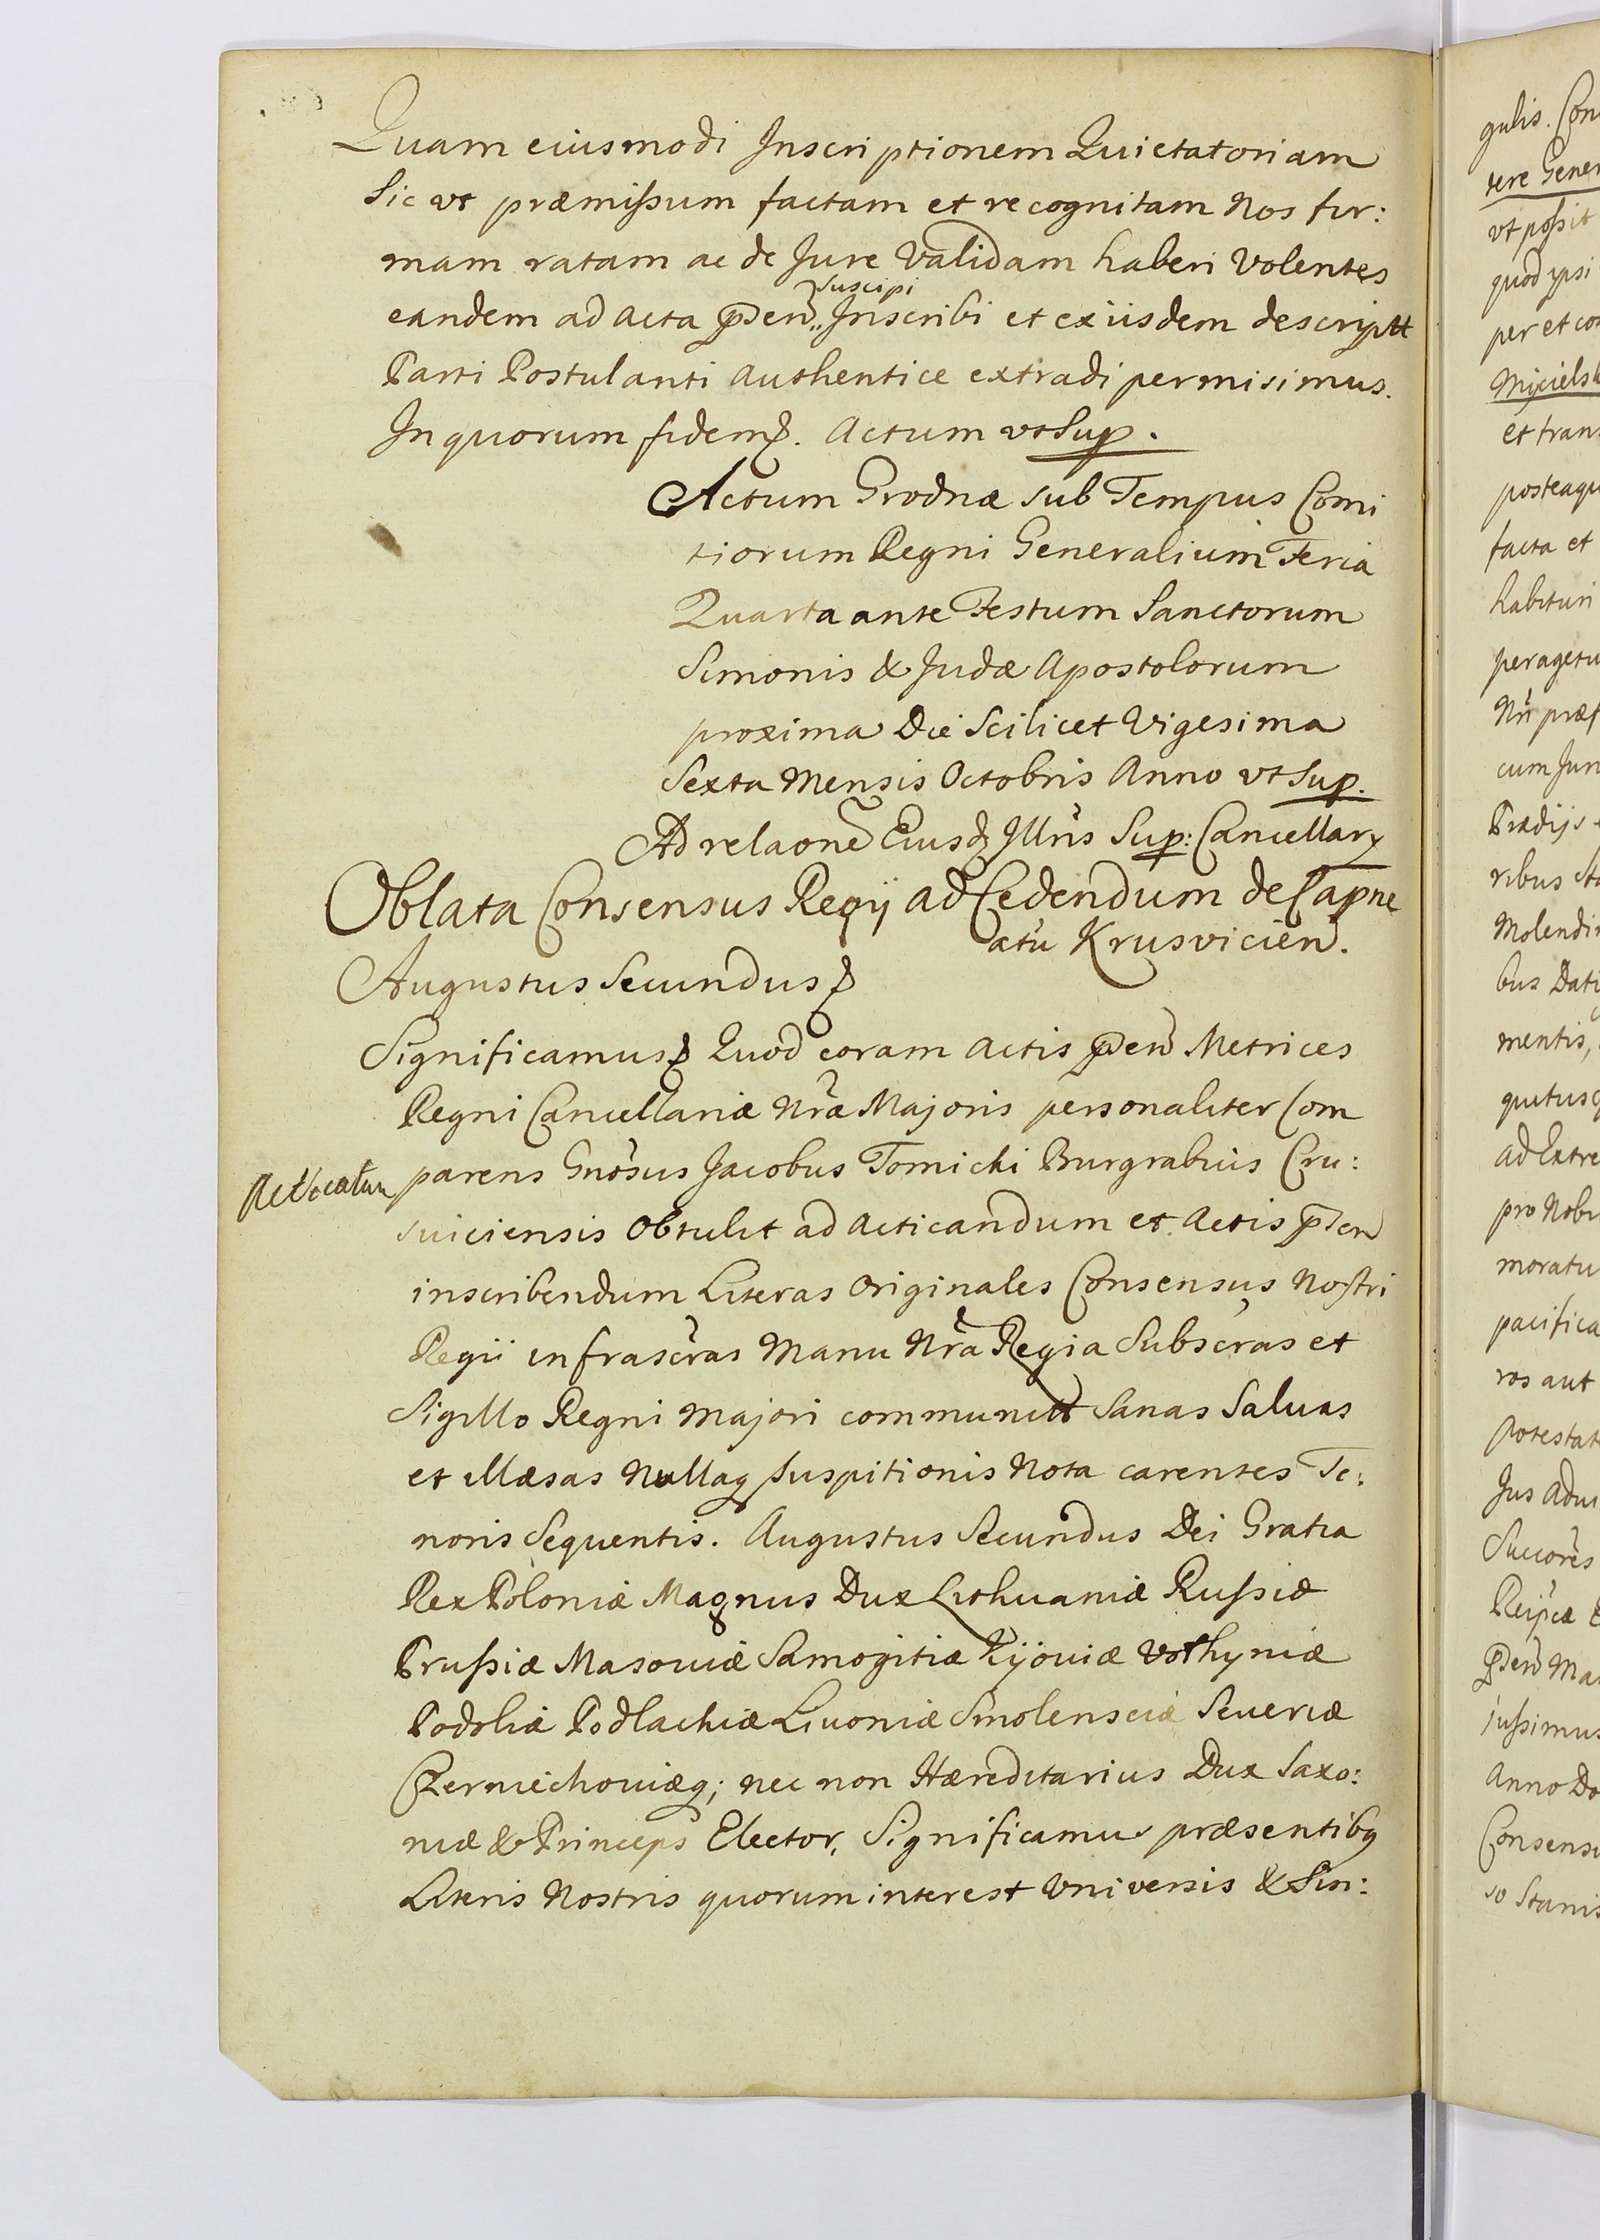 Quam eiusmodi Inscriptionem Quietatoriam
Sic vt præmissum factam et recognitam Nos fir:
mam ratam ac de Jure Validam haberi Volentes
suscipi
eandem ad Acta pñen Inscribi et ex iisdem descriptt
Parti Postulanti Authentice extradi permisimus.
In quorum fidem. Actum vt Sup.
Actum Grodnæ sub Tempus Comi
tiorum Regni Generalium Feria
Quarta ante Festum Sanctorum
Simonis & Judæ Apostolorum
proxima Die Scilicet Vigesima
Sexta Mensis Octobris Anno vt Sup.
Ad relaone Eiusq Illris Sup: Cancellary
Oblata Consensus Regij ad Cedendum de Capne
atu Krusvicien.
Augustus Secundus
Significamus Quod coram Actis pñen Metrices
Regni Cancellariæ Nræ Majoris personaliter Com
parens Gnosus Jacobus Tomicki Burgrabius Cru:
Revocatum
suiciensis Obtulit ad Acticandum et Actis pñen
inscribendum Literas Originales Consensus Nostri
Regii infrascras Manu Nra Regia Subscras et
Sigillo Regni Majori communitt Sanas Saluas
et illæsas Nullaq suspitionis Nota carentes Te:
noris Sequentis. Augustus Secundus Dei Gratia
Rex Poloniæ Magnus Dux Lithuaniæ Russiæ
Prussiæ Masouiæ Samogitiæ Kijouiæ Volhyniæ
Podoliæ Podlachiæ Liuoniæ Smolensciæ Seueriæ
Czerniechouiæq; nec non Hæreditarius Dux Saxo:
niæ & Princeps Elector, Significamus præsentibq
Literis Nostris quorum interest Vniversis & Sin:
gulis. Con
tere Gener
vt possit
quod ipsi
per et con
et trans
posteaqu
facta et
habituri
peragetu
cum Juri
Molendi
bus Dati
mentis,
moratu
pacifica
ros aut
potestat
Succores
jussimus
Anno Do
Consensu
so Stanis